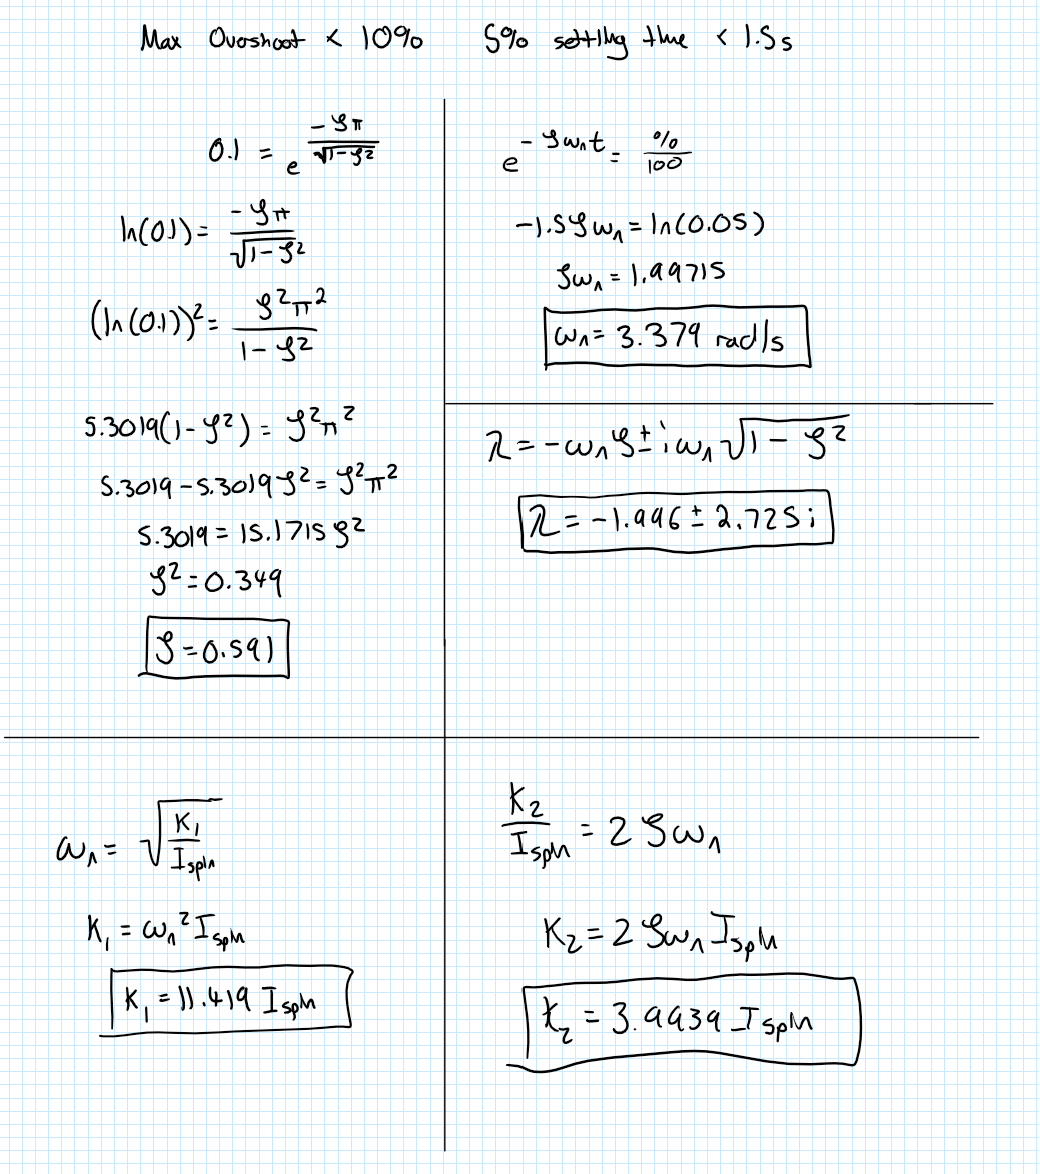 Max Overshoot < 10%    5% settling time < 1.5s
0.1 = e^(-ζπ/√(1-ζ²))
ln(0.1) = -ζπ/√(1-ζ²)
(ln(0.1))² = ζ²π²/(1-ζ²)
5.3019(1-ζ²) = ζ²π²
5.3019 - 5.3019ζ² = ζ²π²
5.3019 = 15.1715ζ²
ζ² = 0.349
ζ = 0.591
e^(-ζωₙt) = %/100
-1.5ζωₙ = ln(0.05)
ζωₙ = 1.99715
ωₙ = 3.379 rad/s
λ = -ωₙζ ± iωₙ√(1-ζ²)
λ = -1.996 ± 2.725i
ωₙ = √(K₁/I_spin)
K₁ = ωₙ² I_spin
K₁ = 11.419 I_spin
K₂/I_spin = 2ζωₙ
K₂ = 2ζωₙ I_spin
K₂ = 3.9939 I_spin